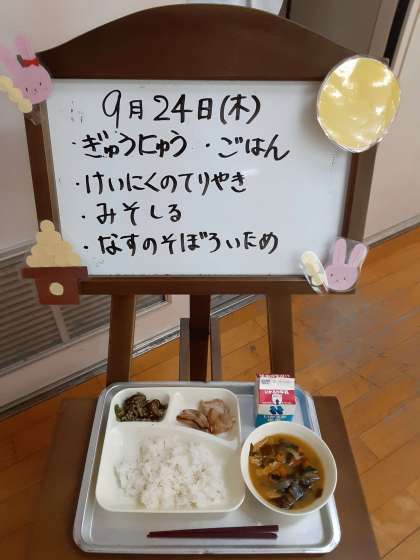 9月24日(木)
・ぎゅうにゅう ・ごはん
・けいにくのてりやき
・みそしる
・なすのそぼろいため